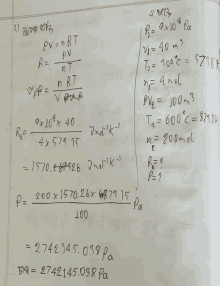 PV = nRT
R = PV / nT
P = nRT / V
R = 9×10⁴ × 40 / 4 × 573.15 J mol⁻¹K⁻¹
= 1570.26 J mol⁻¹K⁻¹
P = 200 × 1570.26 × 873.15 / 100 Pa
= 2742145.038 Pa
= 2742145.038 Pa
P₁ = 9×10⁴ Pa
V₁ = 40 m³
T₁ = 300°C = 573.
n₁ = 4 mol
V₂ = 100 m³
T₂ = 600°C = 873.
n₂ = 200 mol
R = ?
P = ?